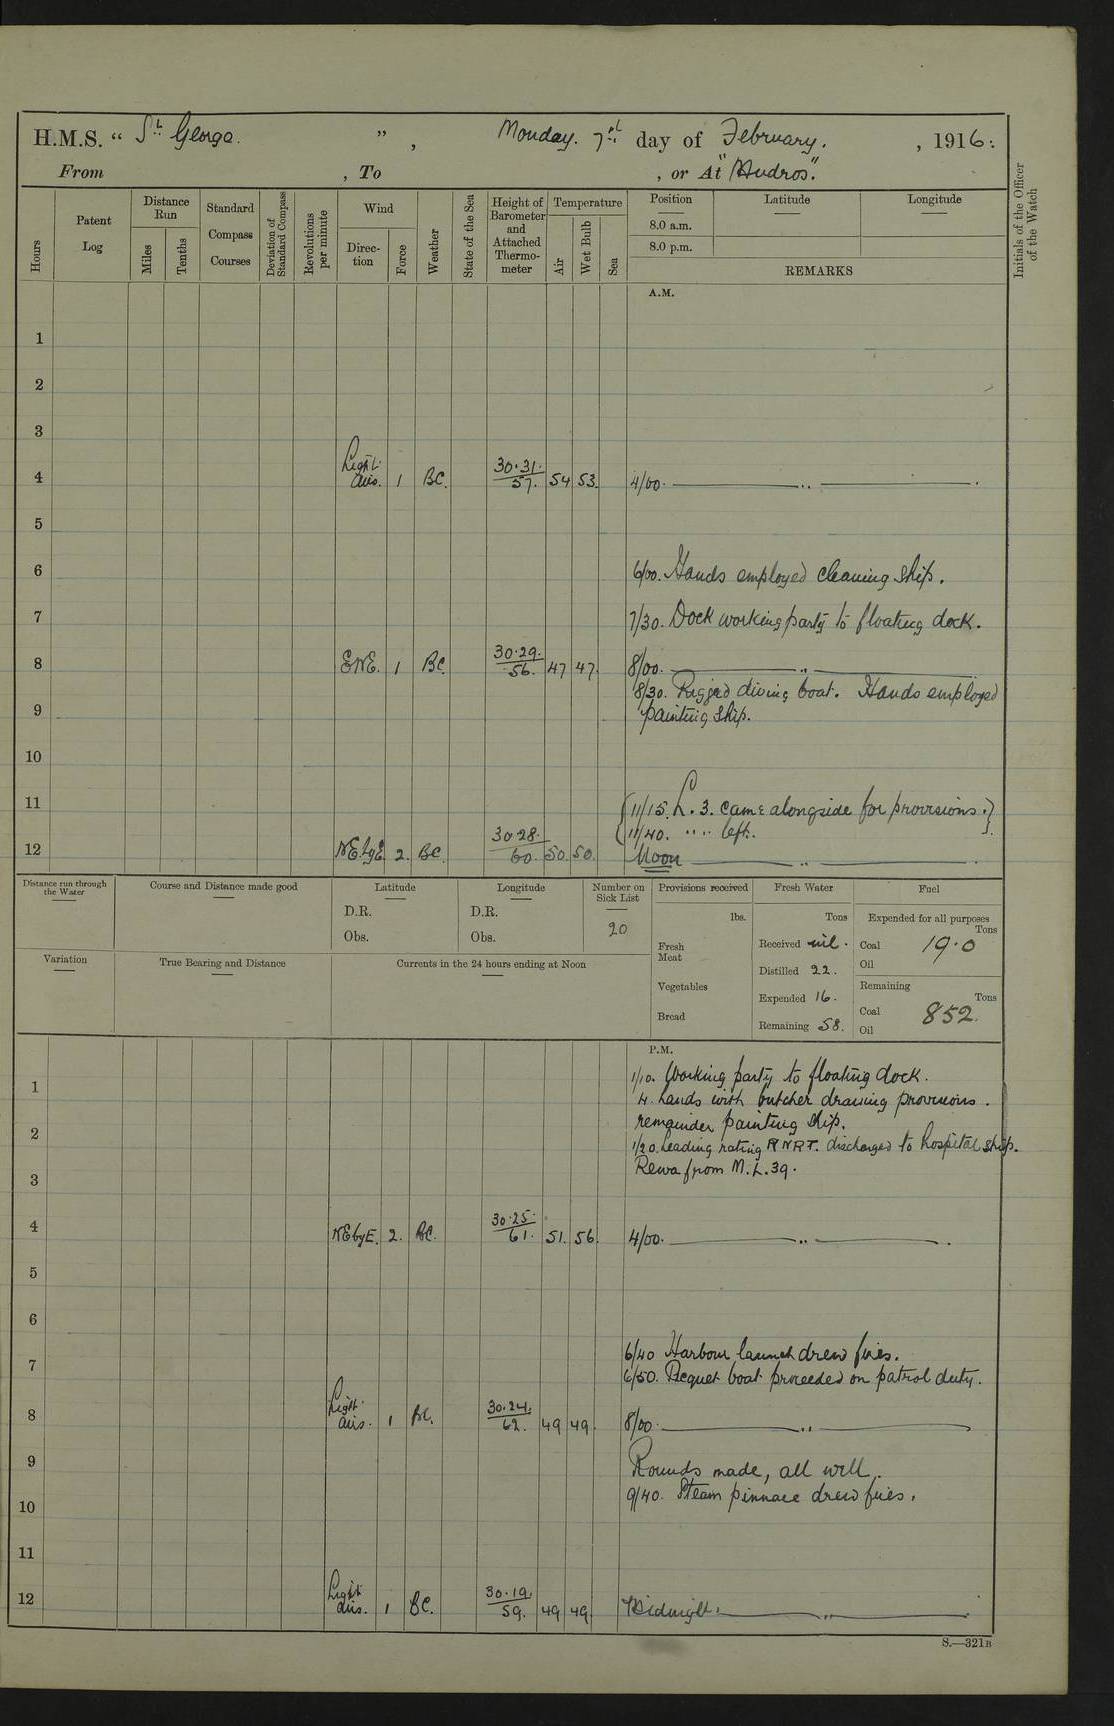 H.M.S. " St. George. ", Monday. 7th day of February. , 1916.
From , To , or At "Mudros".
Hours
Patent Log
Distance Run
Miles
Tenths
Standard Compass Courses
Deviation of Standard Compass
Revolutions per minute
Wind
Direc-tion
Force
Weather
State of the Sea
Height of Barometer and Attached Thermo-meter
Temperature
Air
Wet Bulb
Sea
Position
8.0 a.m.
8.0 p.m.
Latitude
Longitude
REMARKS
Initials of the Officer of the Watch
A.M.
1
2
3
4 Light airs. 1 BC. 30.31. 57. 54 53. 4/00.
5
6 6/00. Hands employed cleaning ship.
7 7/30. Dock working party to floating dock.
8 ENE. 1 BC. 30.29. 56. 47 47. 8/00.
8/30. Rigged diving boat. Hands employed
9 painting ship.
10
11 11/15. L. 3. came alongside for provisions.
11/40. " " left.
12 NE.byE 2. BC. 30.28. 60. 50. 50. Noon
Distance run through the Water
Course and Distance made good
Latitude
D.R.
Obs.
Longitude
D.R.
Obs.
Number on Sick List
20
Provisions received
lbs.
Fresh Meat
Vegetables
Bread
Fresh Water
Tons
Received nil.
Distilled 22.
Expended 16.
Remaining 58.
Fuel
Expended for all purposes
Tons
Coal 19.0
Oil
Remaining
Tons
Coal 852.
Oil
Variation
True Bearing and Distance
Currents in the 24 hours ending at Noon
P.M.
1 1/10. Working party to floating dock.
4. hands with butcher drawing provisions.
2 remainder painting ship.
1/20. Leading rating RNRT. discharged to hospital ship.
3 Rewa from M.L.39.
4 NEbyE. 2. BC. 30.25. 61. 51. 56. 4/00.
5
6
6/40 Harbour launch drew fires.
7 6/50. Picquet boat proceeded on patrol duty.
8 Light airs. 1 BC. 30.24. 62. 49 49. 8/00.
9 Rounds made, all well.
9/40. Steam pinnace drew fires.
10
11
12 Light airs. 1 BC. 30.19. 59. 49 49. Midnight.
S.—321B